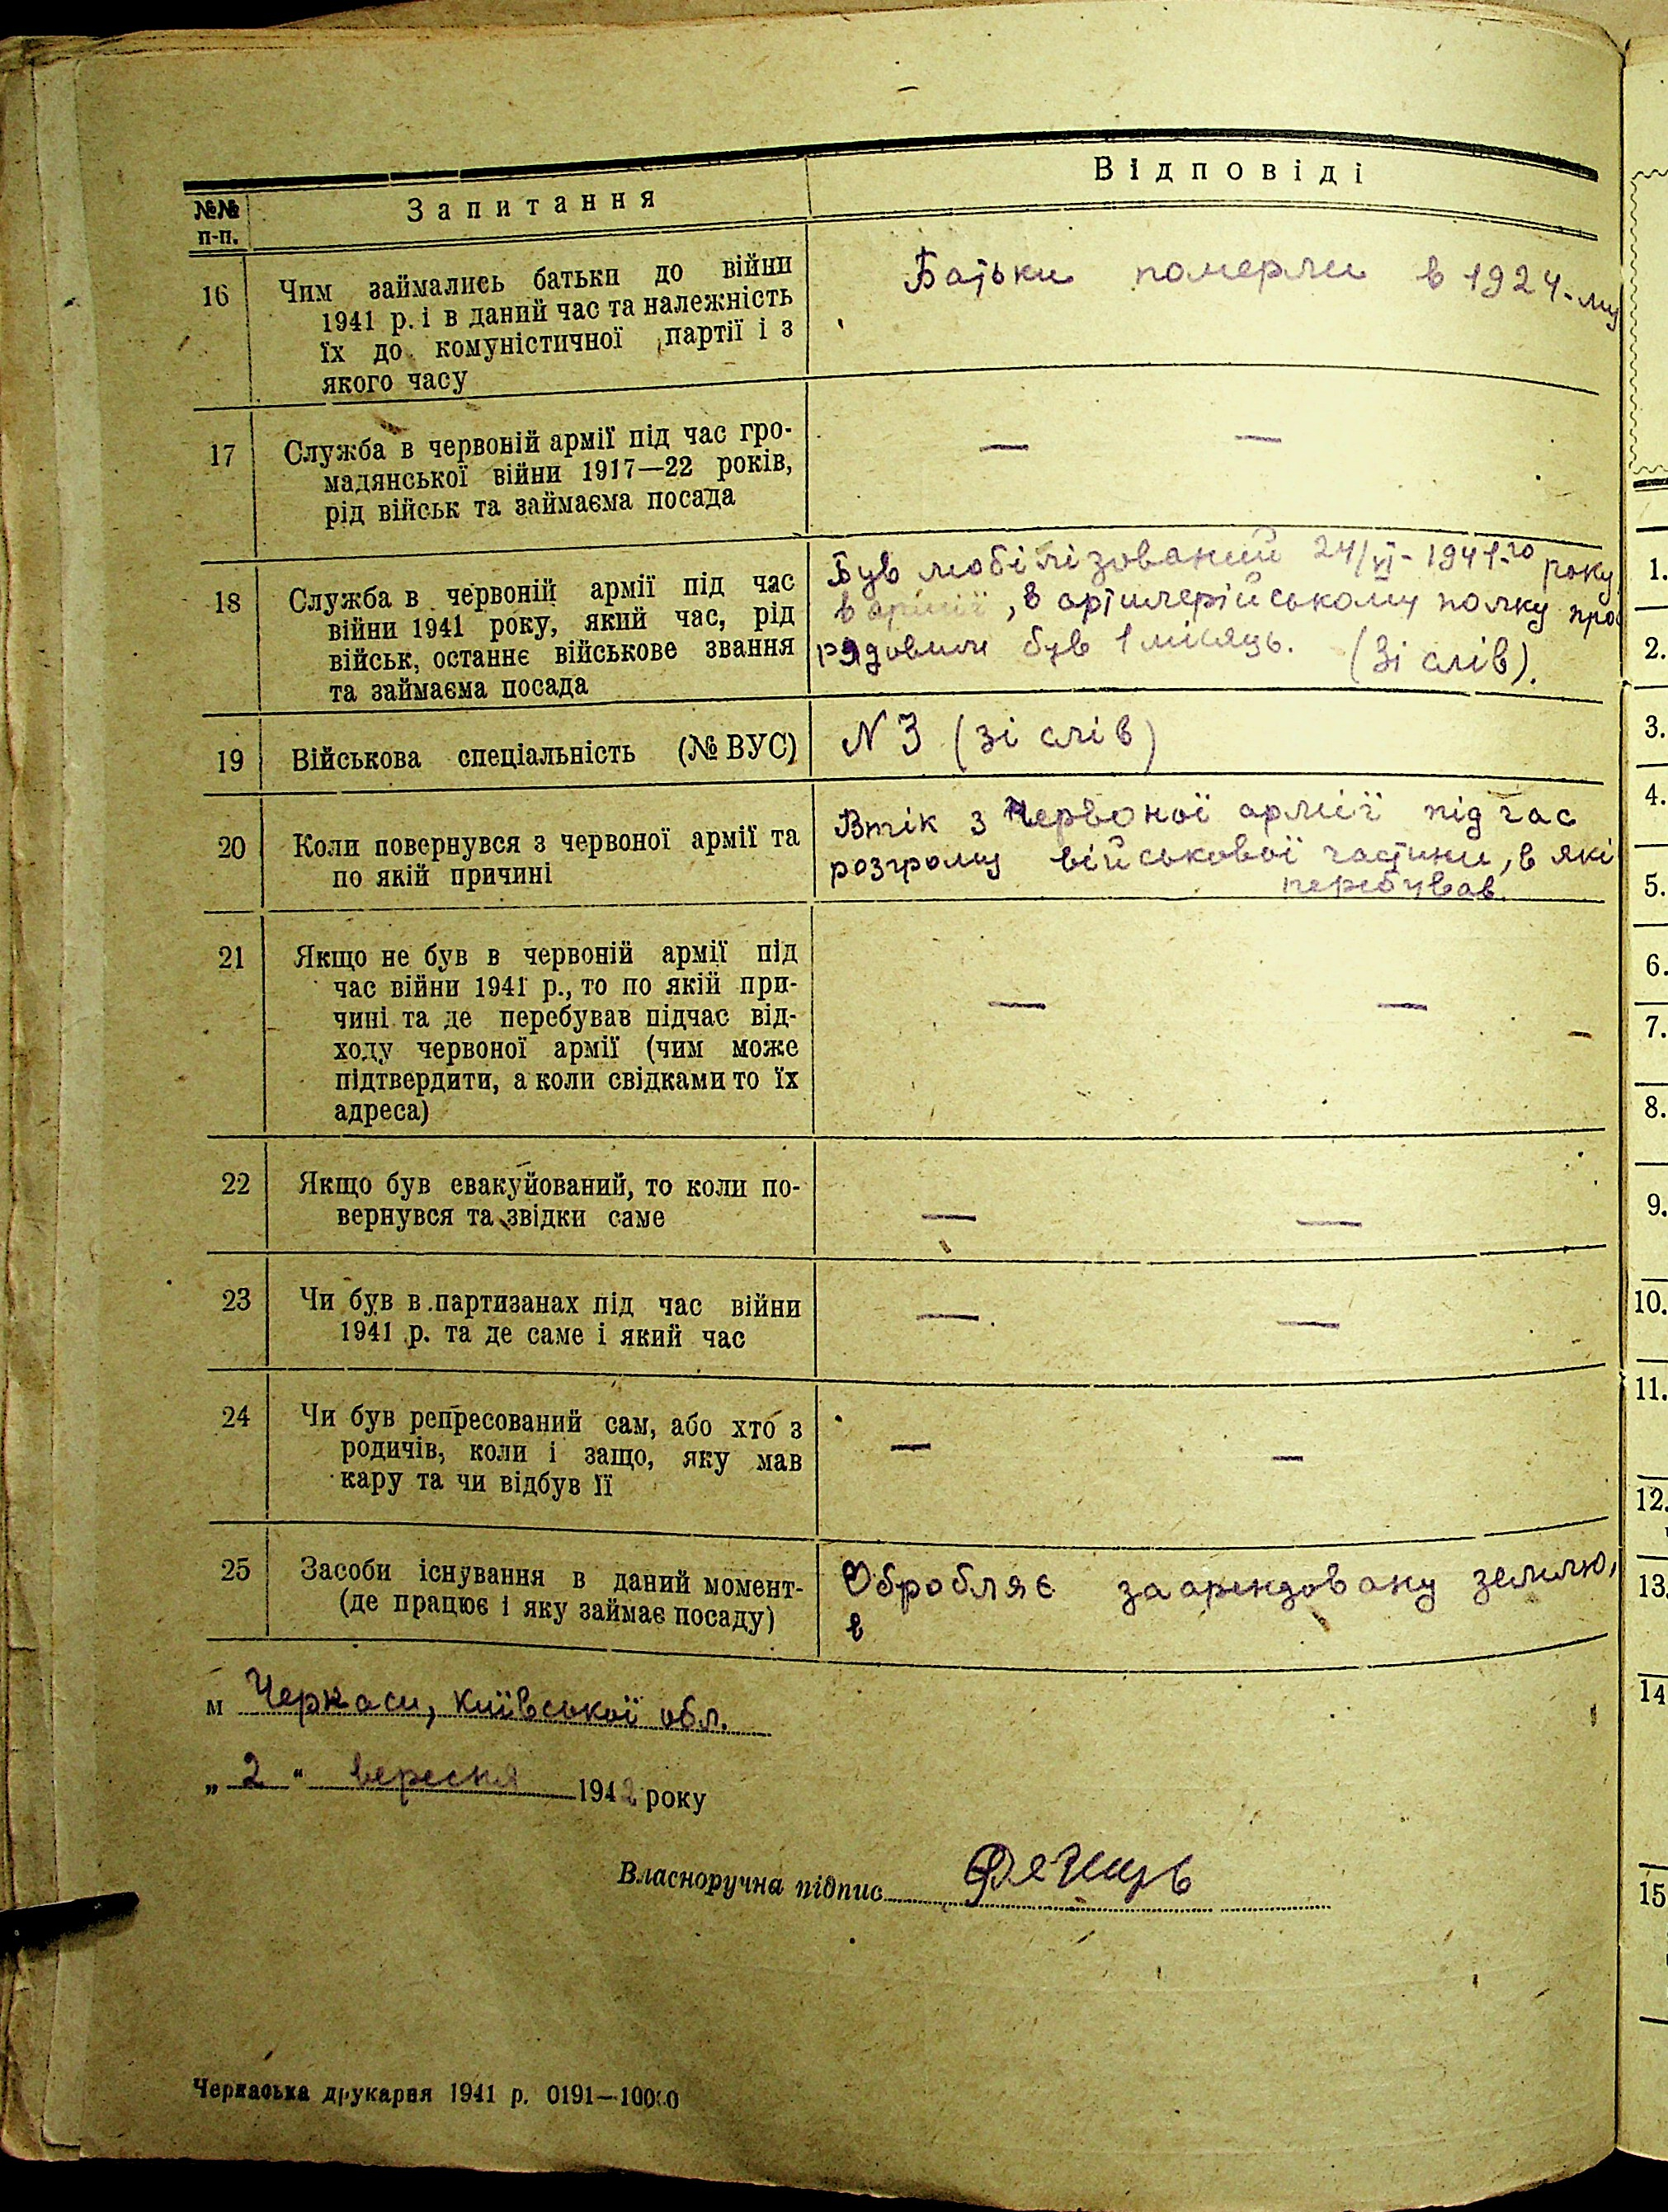 №№ п-п.
Запитання
Відповіді
16
Чим займались батьки до війни
1941 р. і в даний час та належність
їх до комуністичної партії і з
якого часу
Батьки померли в 1924-му
17
Служба в червоній армії під час гро-
мадянської війни 1917—22 років,
рід військ та займаєма посада
— —
18
Служба в червоній армії під час
війни 1941 року, який час, рід
військ, останнє військове звання
та займаєма посада
Був мобілізований 24/VI-1941-го року
в армії, в артилерійському полку про
рядовим був 1 місяць. (Зі слів).
19
Військова спеціальність (№ ВУС)
N 3 (зі слів)
20
Коли повернувся з червоної армії та
по якій причині
Втік з Червоної армії під час
розгрому військової частини, в які
перебував.
21
Якщо не був в червоній армії під
час війни 1941 р., то по якій при-
чині та де перебував підчас від-
ходу червоної армії (чим може
підтвердити, а коли свідками то їх
адреса)
— —
22
Якщо був евакуйований, то коли по-
вернувся та звідки саме
— —
23
Чи був в партизанах під час війни
1941 р. та де саме і який час
— —
24
Чи був репресований сам, або хто з
родичів, коли і защо, яку мав
кару та чи відбув її
— —
25
Засоби існування в даний момент-
(де працює і яку займає посаду)
Обробляє заарендовану землю,
в
м Черкаси, Київської обл.
„2" вересня 1942 року
Власноручна підпис
Черкаська друкарня 1941 р. 0191—10000
1.
2.
3.
4.
5.
6.
7.
8.
9.
10.
11.
12.
13.
14
15